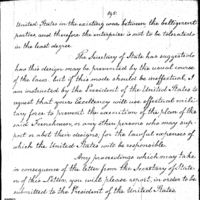 United States in the existing war between the belligerent
parties, and therefore the enterprise is not to be tolerated
in the least degree.
The Secretary of State has suggested
has this design may be prevented by the usual course
of the laws but if this mode should be ineffectual, I
am instructed by the President of the United States to
request that your Excellency will use effectual mili-
tary force to prevent the execution of the plan of the
said Frenchmen, or any other persons who may sup-
port or abet their designs, for the lawful expenses of
which the United States will be responsible.
Any proceedings which may take
in consequence of the letter from the Secretary of State
of this Letter, you will please report, in order to be
submitted to the President of the United States